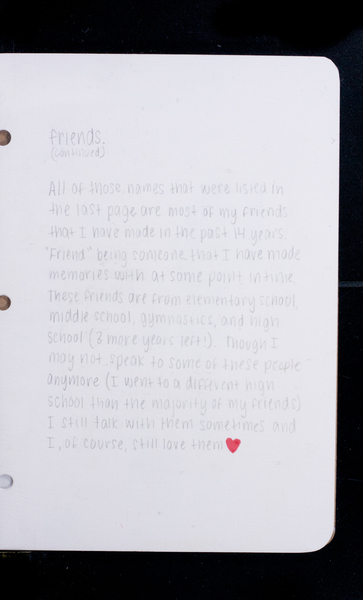 friends.
(continued)
All of those names that were listed in
the last page are most of my friends
that I have made in the past 14 years.
"Friend" being someone that I have made
memories with at some point in time.
These friends are from elementary school,
middle school, gymnastics, and high
school (3 more years left!). Though I
may not speak to some of these people
anymore (I went to a different high
school than the majority of my friends)
I still talk with them sometimes and
I, of course, still love them ♥